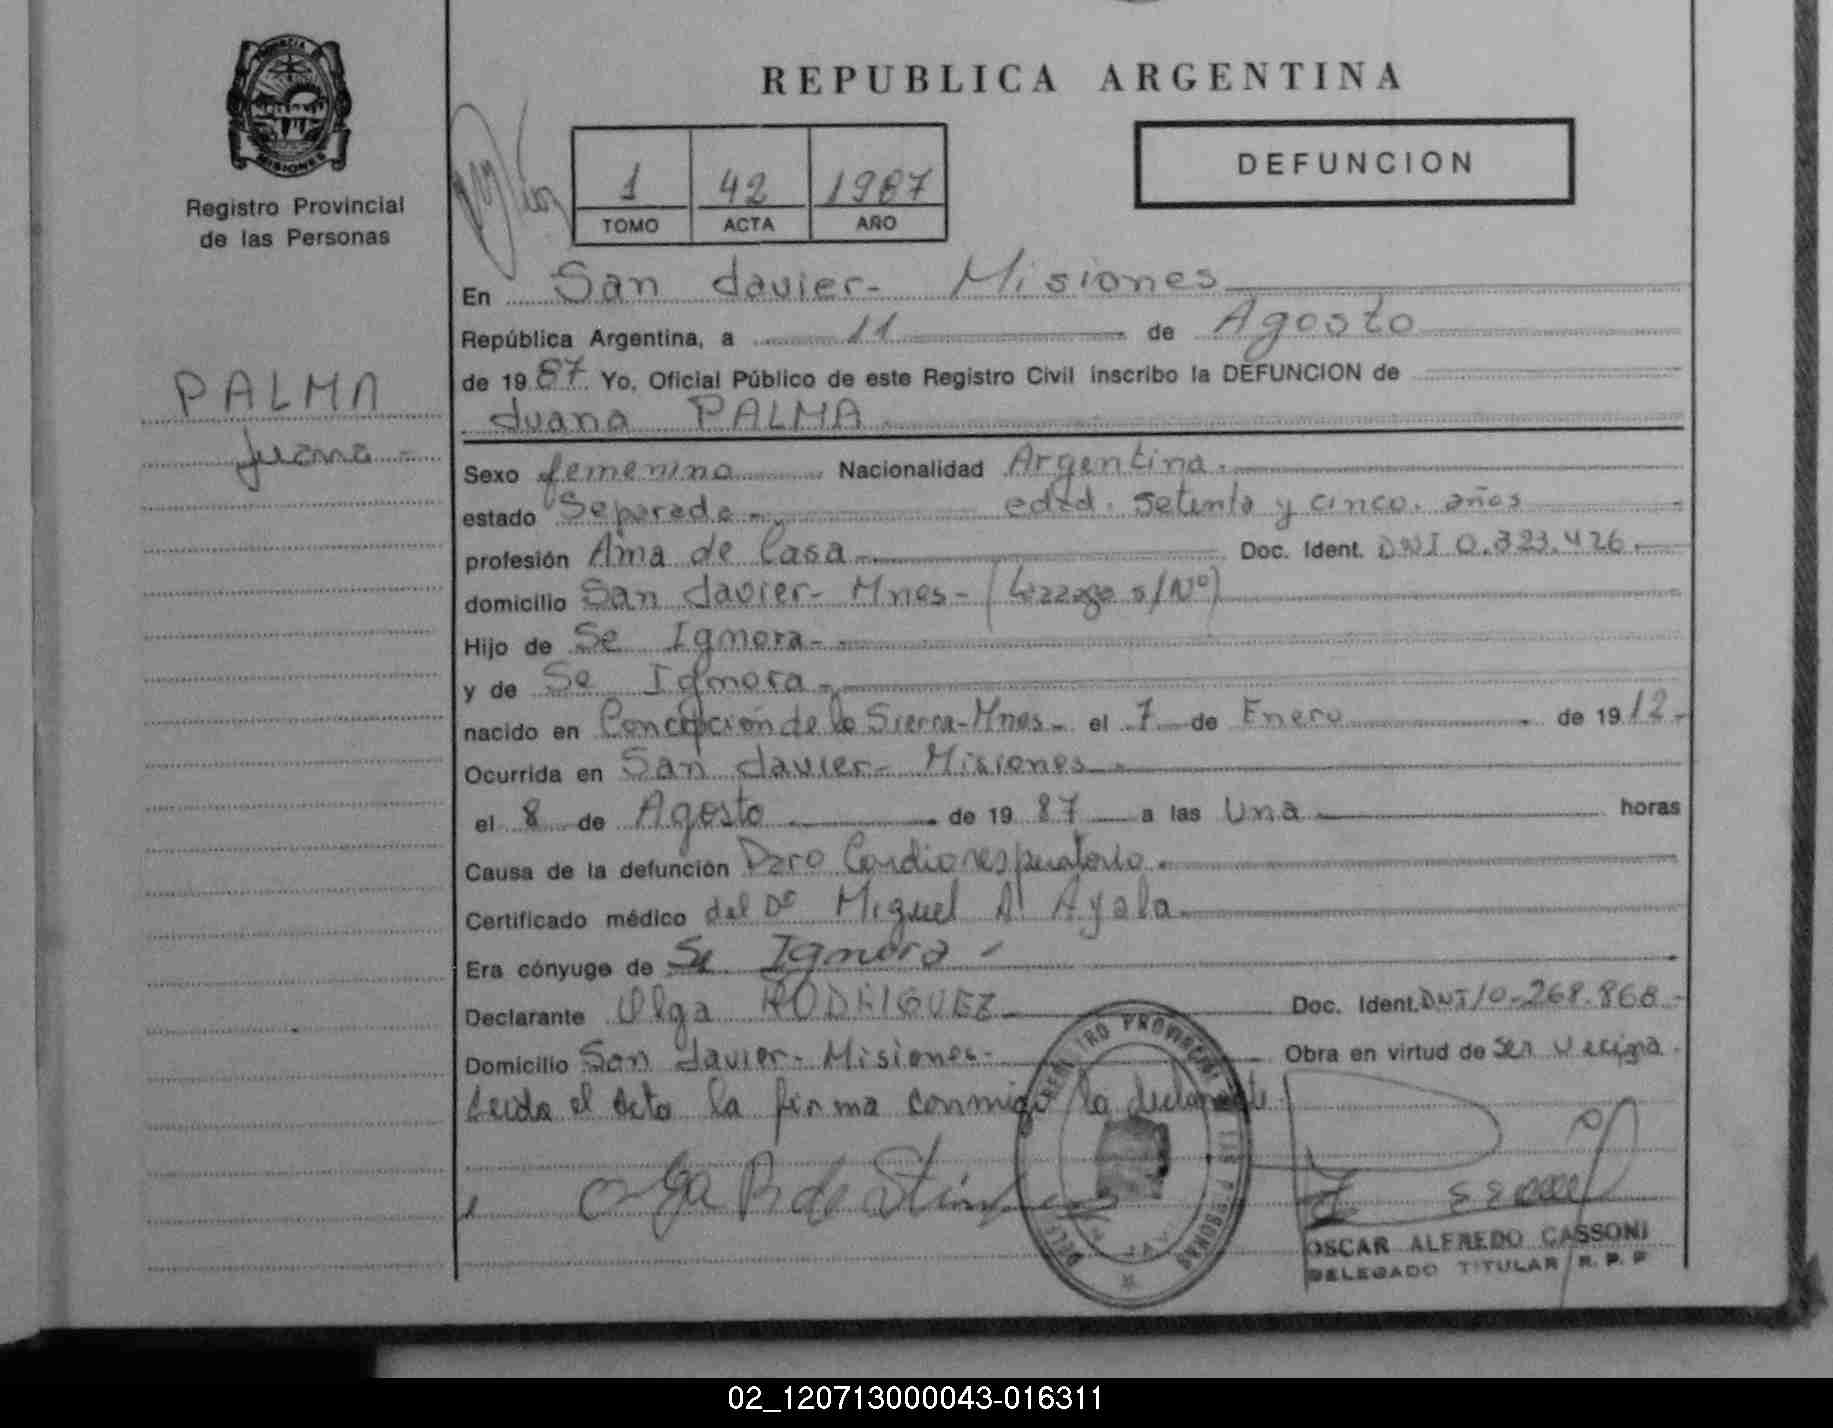 PROVINCIA DE
MISIONES
Registro Provincial
de las Personas
PALMA
Juana -
REPUBLICA ARGENTINA
DEFUNCION
1 42 1987
TOMO ACTA AÑO
En San Javier - Misiones
República Argentina, a 11 de Agosto
de 19 87 Yo, Oficial Público de este Registro Civil inscribo la DEFUNCION de
Juana PALMA
Sexo femenino Nacionalidad Argentina.
estado Separada - edad. Setenta y cinco. años
profesión Ama de Casa Doc. Ident. DNI 0.323.426.
domicilio San Javier - Mnes - ( s/Nº)
Hijo de Se Ignora -
y de Se Ignora -
nacido en Concepción de la Sierra - Mnes - el 7 de Enero de 19 12 -
Ocurrida en San Javier - Misiones
el 8 de Agosto de 19 87 a las Una horas
Causa de la defunción Paro Cardiorespiratorio.
Certificado médico del Dr Miguel A. Ayala
Era cónyuge de Se Ignora -
Declarante Olga RODRIGUEZ Doc. Ident. DNI 10.268.868 -
Domicilio San Javier - Misiones - Obra en virtud de Ser vecina.
Leida el Acta la firma conmigo la declarante
Olga R de
OSCAR ALFREDO CASSONI
DELEGADO TITULAR R. P. P
02_120713000043-016311